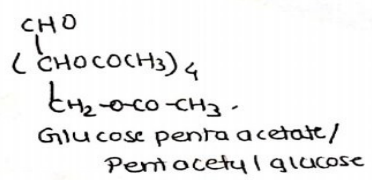 CHO
(CHOCOCH3)4
CH2-O-CO-CH3.
Glucose penta acetate/
Pentacetyl glucose